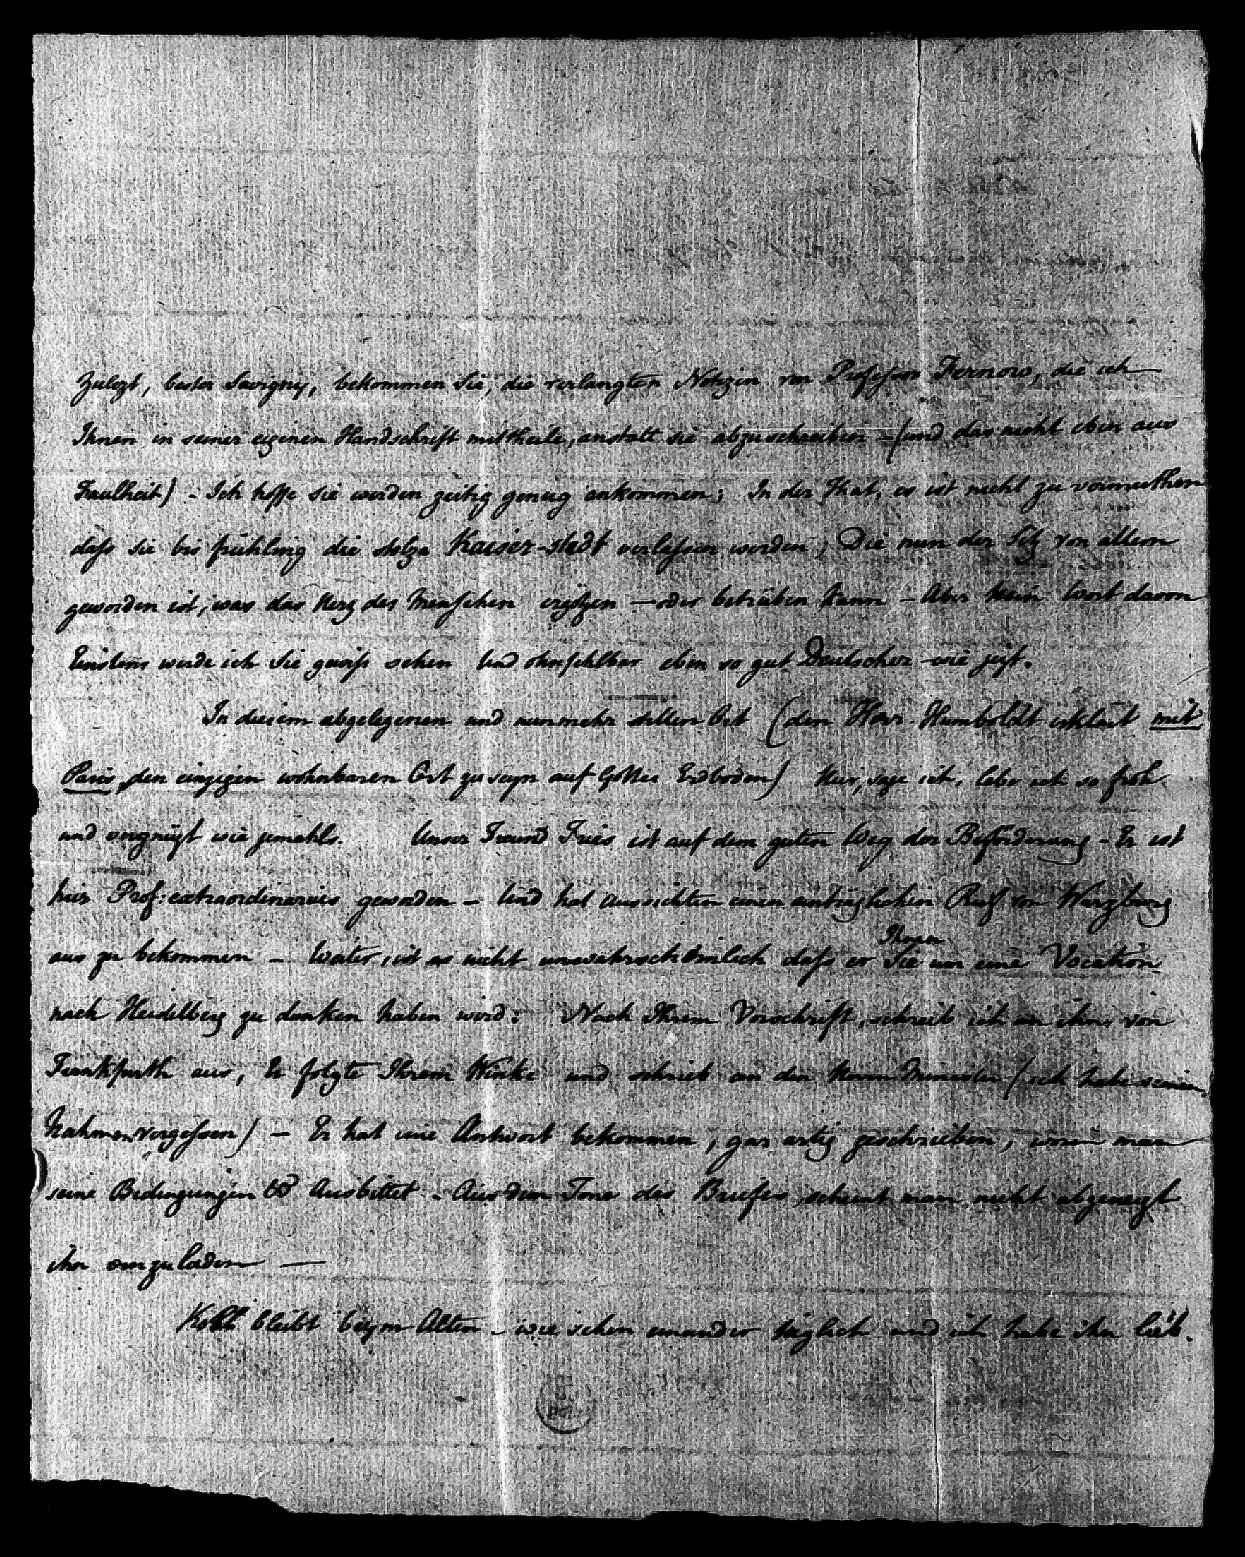 Zulezt, bester Savigny, bekommen Sie, die verlangten Notizen von Professor Fernow, die ich
Ihnen in seiner eigenen Handschrift mittheile, anstatt sie abzuschreiben – (und das nicht eben aus
Faulheit) – Ich hoffe sie werden zeitig genug ankommen; In der That, es ist nicht zu vermuthen
dass Sie bis frühling die stolze Kaiser-stadt verlassen werden, Die nun der Sitz von allem
geworden ist, was das Herz des Menschen ergötzen – oder betrüben kann – Aber kein Wort davon
Einstens werde ich Sie gewiss sehen Und ohnfehlbar eben so gut Deutscher wie jezt.
In diesem abgelegenen und nunmehr stillen Ort (den Herr Humboldt erklärt mit
Paris den einzigen wohnbaren Ort zu seyn auf Gottes Erdboden) Hier, sage ich, lebe ich so froh
und vergnügt wie jemahls. Unser Freund Fries ist auf dem guten Weg der Beförderung – Er ist
hier Prof: extraordinarius geworden – Und hat Aussichten einen einträglichen Ruf von Würzburg
aus zu bekommen – Weiter, ist es nicht unwahrscheinlich dass er Sie Ihnen um eine Vocation
nach Heidelberg zu danken haben wird: Nach Ihrem Vorschrift, schrieb ich an ihn, von
Frankfurth aus, Er folgte Ihrem Winke und schrieb an den (ich habe seinen
Nahmen vergessen) – Er hat eine Antwort bekommen, gar artig geschrieben, worin man
seine Bedingungen Ausbittet – Aus dem Tone des Briefes, scheint man nicht abgeneigt
ihn einzuladen —
Koll bleibt beym Alten – wir sehen einander täglich und ich habe ihn lieb.